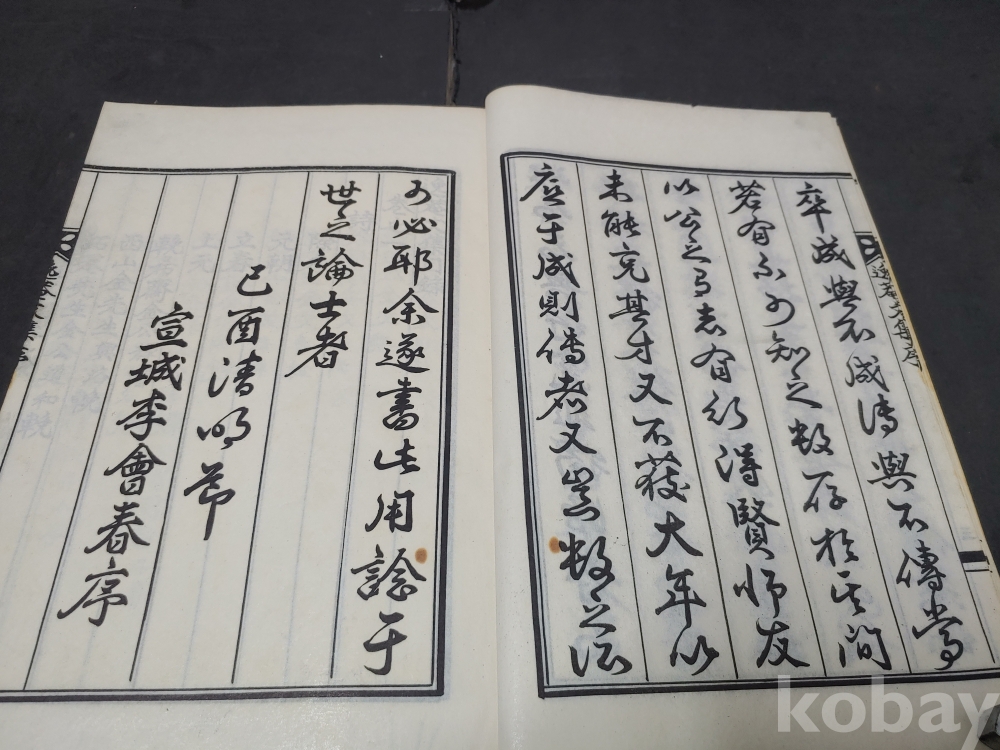 卒成與不成傳與不傳常
若有不可知之數存於其間
以公之高志有行得賢師友
未能充其才又不獲大年以
底于成則傳者又豈數之
可必耶余遂書此用諗于
世之論士者
己酉清明節
宣城李會春序
文集序
kobay